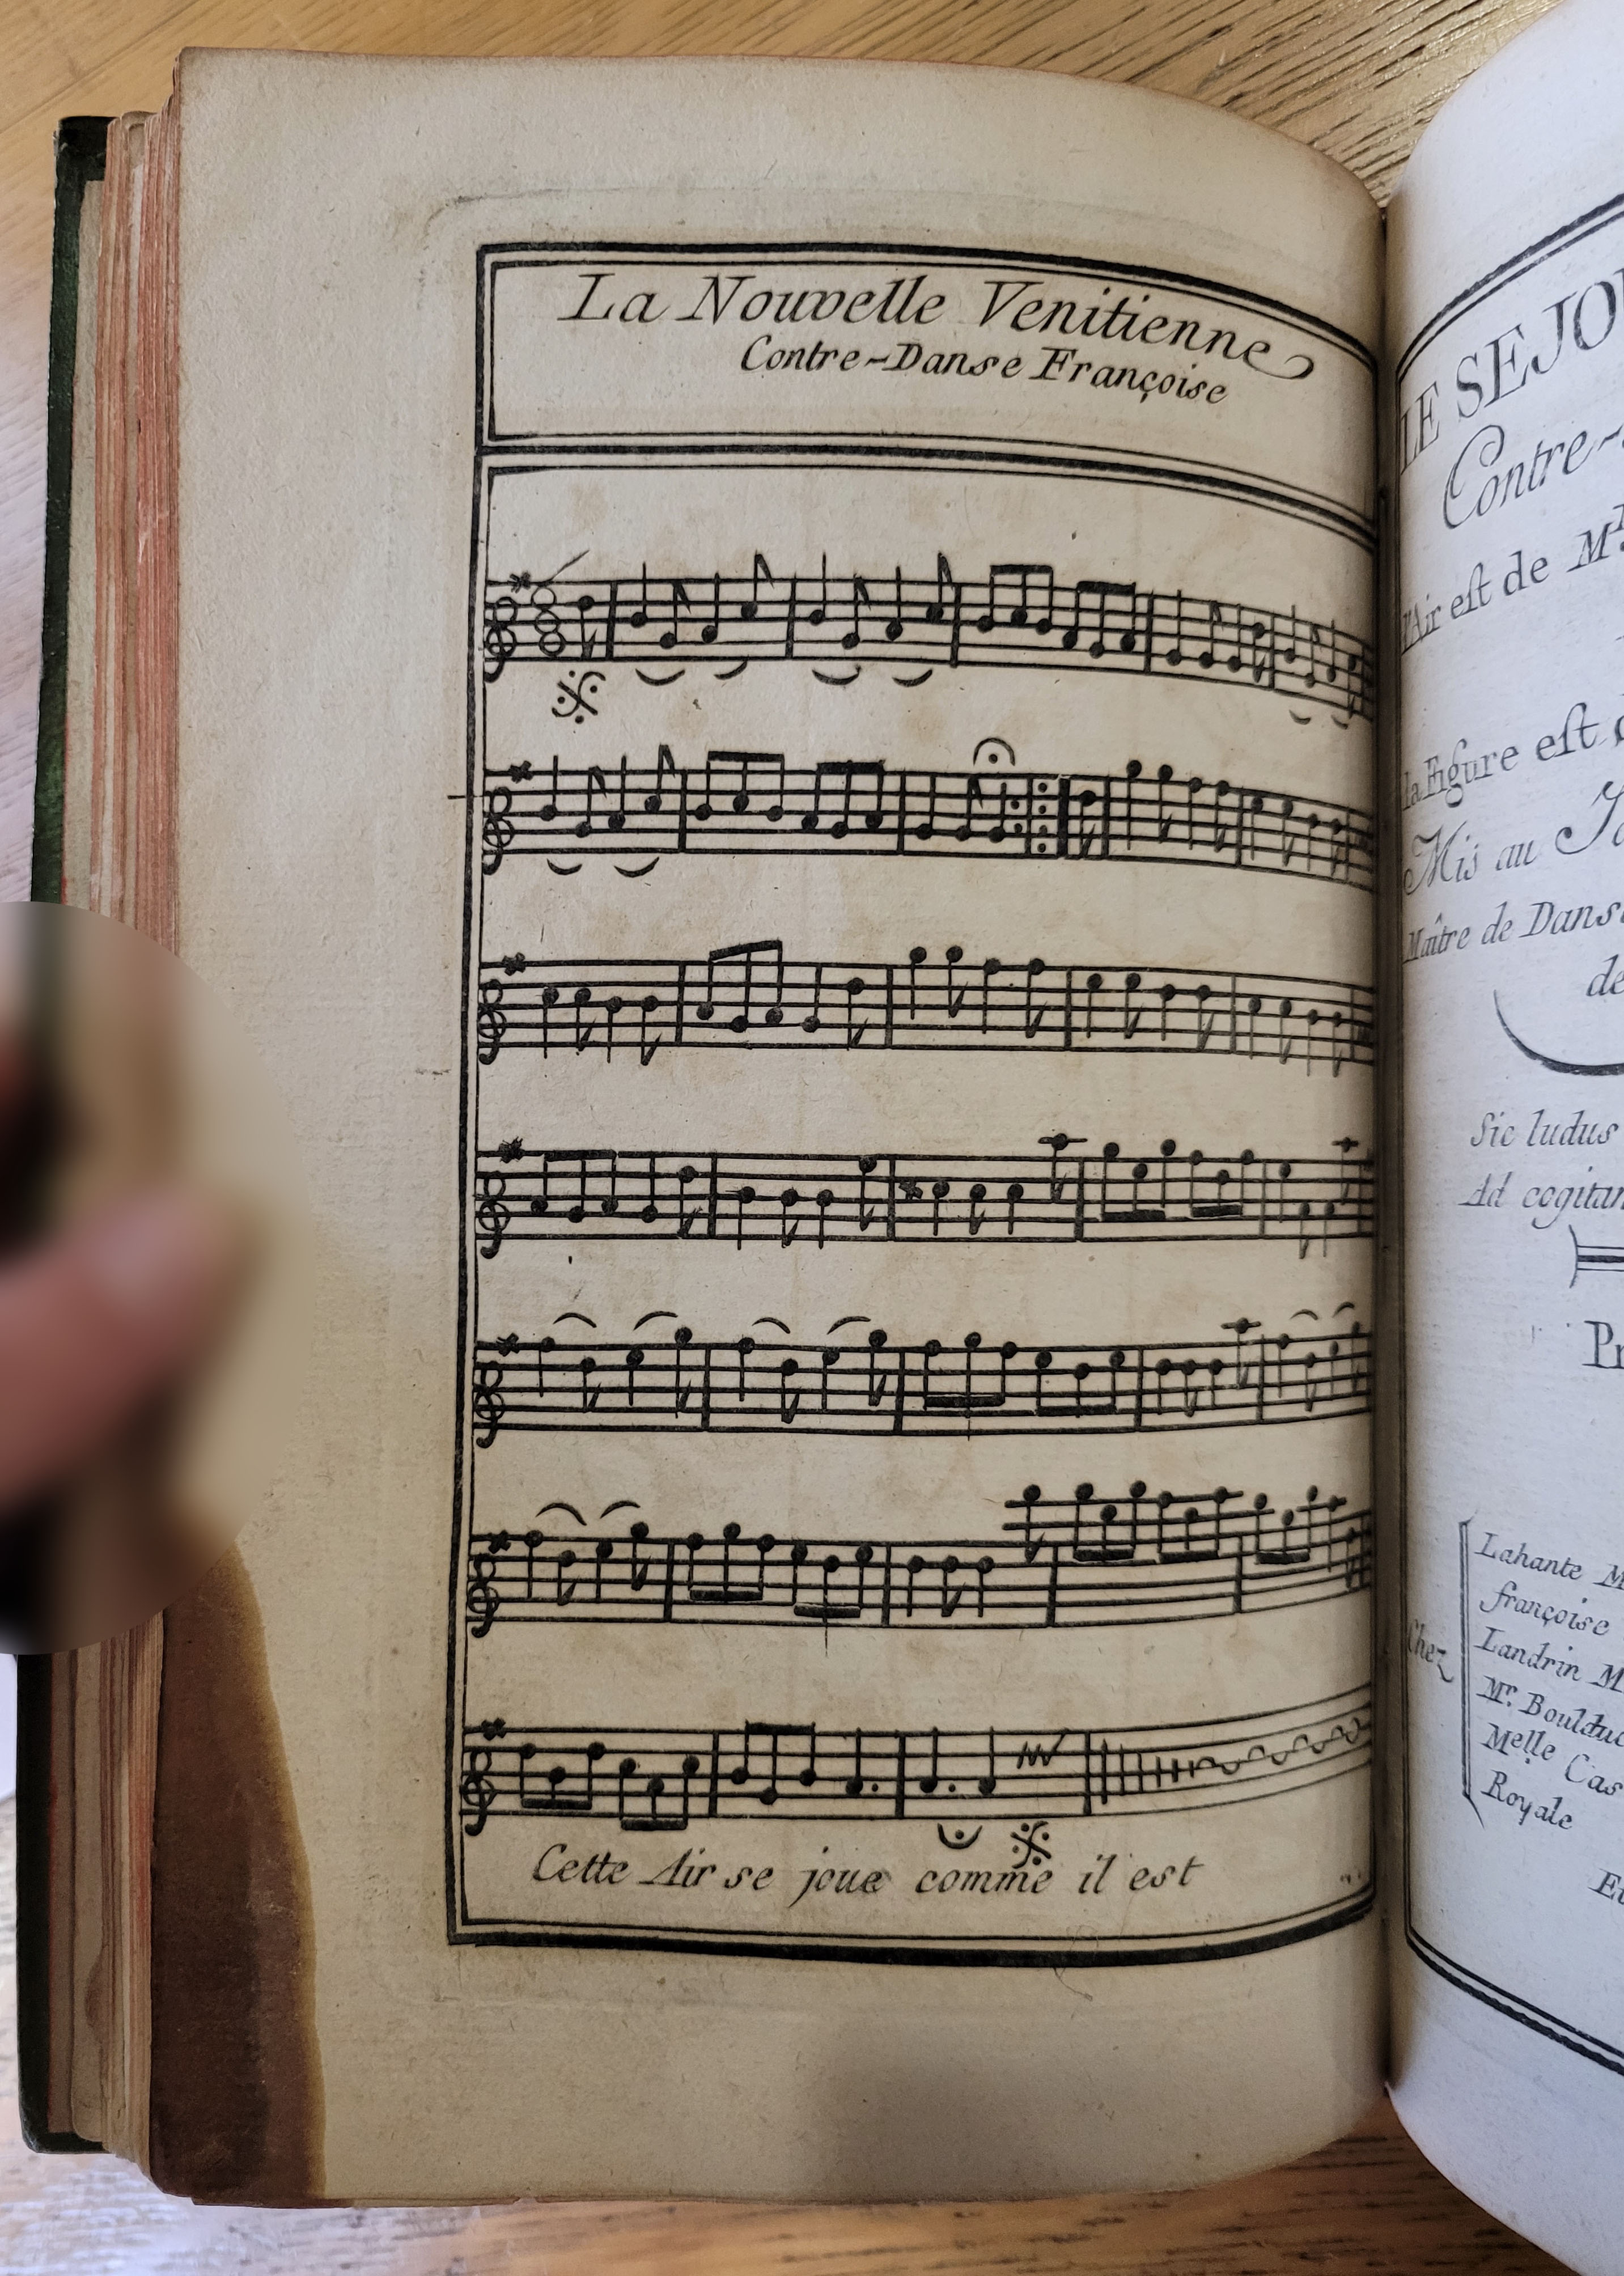 La Nouvelle Venitienne
Contre-Danse Françoise
Cette Air se joue comme il est
LE SEJO
Contre-
l'Air est de Mr
la Figure est
Mis au
Maître de Dans
de
Sic ludus
Ad cogitan
Pr
Chez
Lahante M
françoise
Landrin M
Mr. Boulduc
Melle Cas
Royale
Et